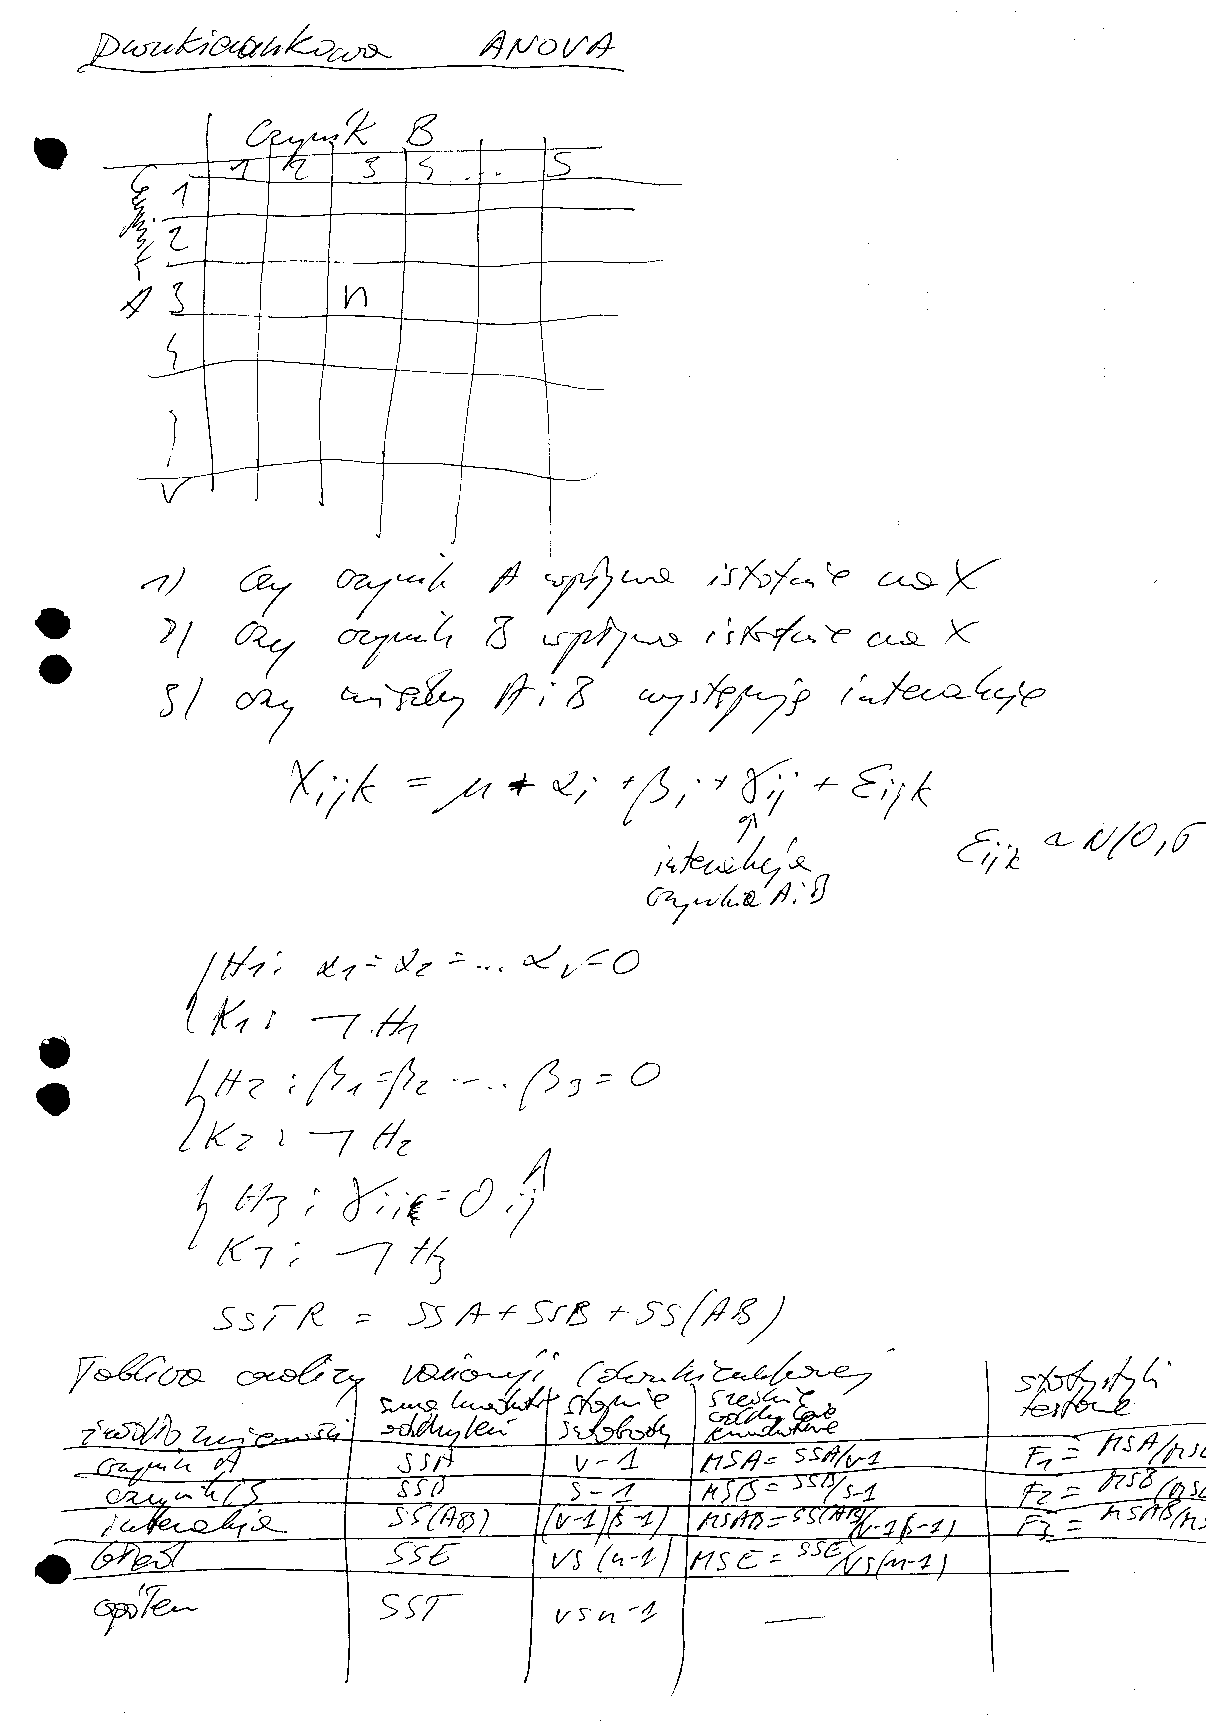 Dwukierunkowa ANOVA
Czynnik B
1 2 3 4 ... S
Czynnik A
1
2
3 n
4
r
1) Czy czynnik A wpływa istotnie na X
2) Czy czynnik B wpływa istotnie na X
3) czy między A i B występuje interakcje
Xijk = μ + αi + βj + γij + εijk
εijk ~ N(0,σ
interakcja
czynnika A i B
H1: α1 = α2 = ... αr = 0
K1: ¬ H1
H2: β1 = β2 ... βs = 0
K2: ¬ H2
H3: γij = 0 ij
K3: ¬ H3
SSTR = SSA + SSB + SS(AB)
Tablica analizy wariancji (dwukierunkowej
źródło zmienności | suma kwadratów odchyleń | stopnie swobody | średnie odchylenie kwadratowe | statystyki testowe
czynnik A | SSA | r-1 | MSA = SSA/r-1 | F1 = MSA/MSE
czynnik B | SSB | s-1 | MSB = SSB/s-1 | F2 = MSB/MSE
interakcja | SS(AB) | (r-1)(s-1) | MSAB = SS(AB)/(r-1)(s-1) | F3 = MSAB/MS
błąd | SSE | rs(n-1) | MSE = SSE/rs(n-1)
ogółem | SST | rsn-1 | —